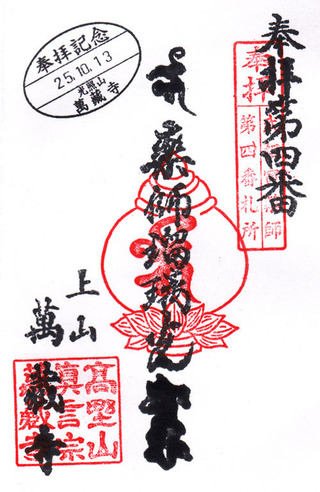 奉拝第四番
奉拝
第四番札所
薬師瑠璃光
上山
萬蔵寺
高野山
真言宗
奉拝記念
25.10.13
光照山
萬蔵寺